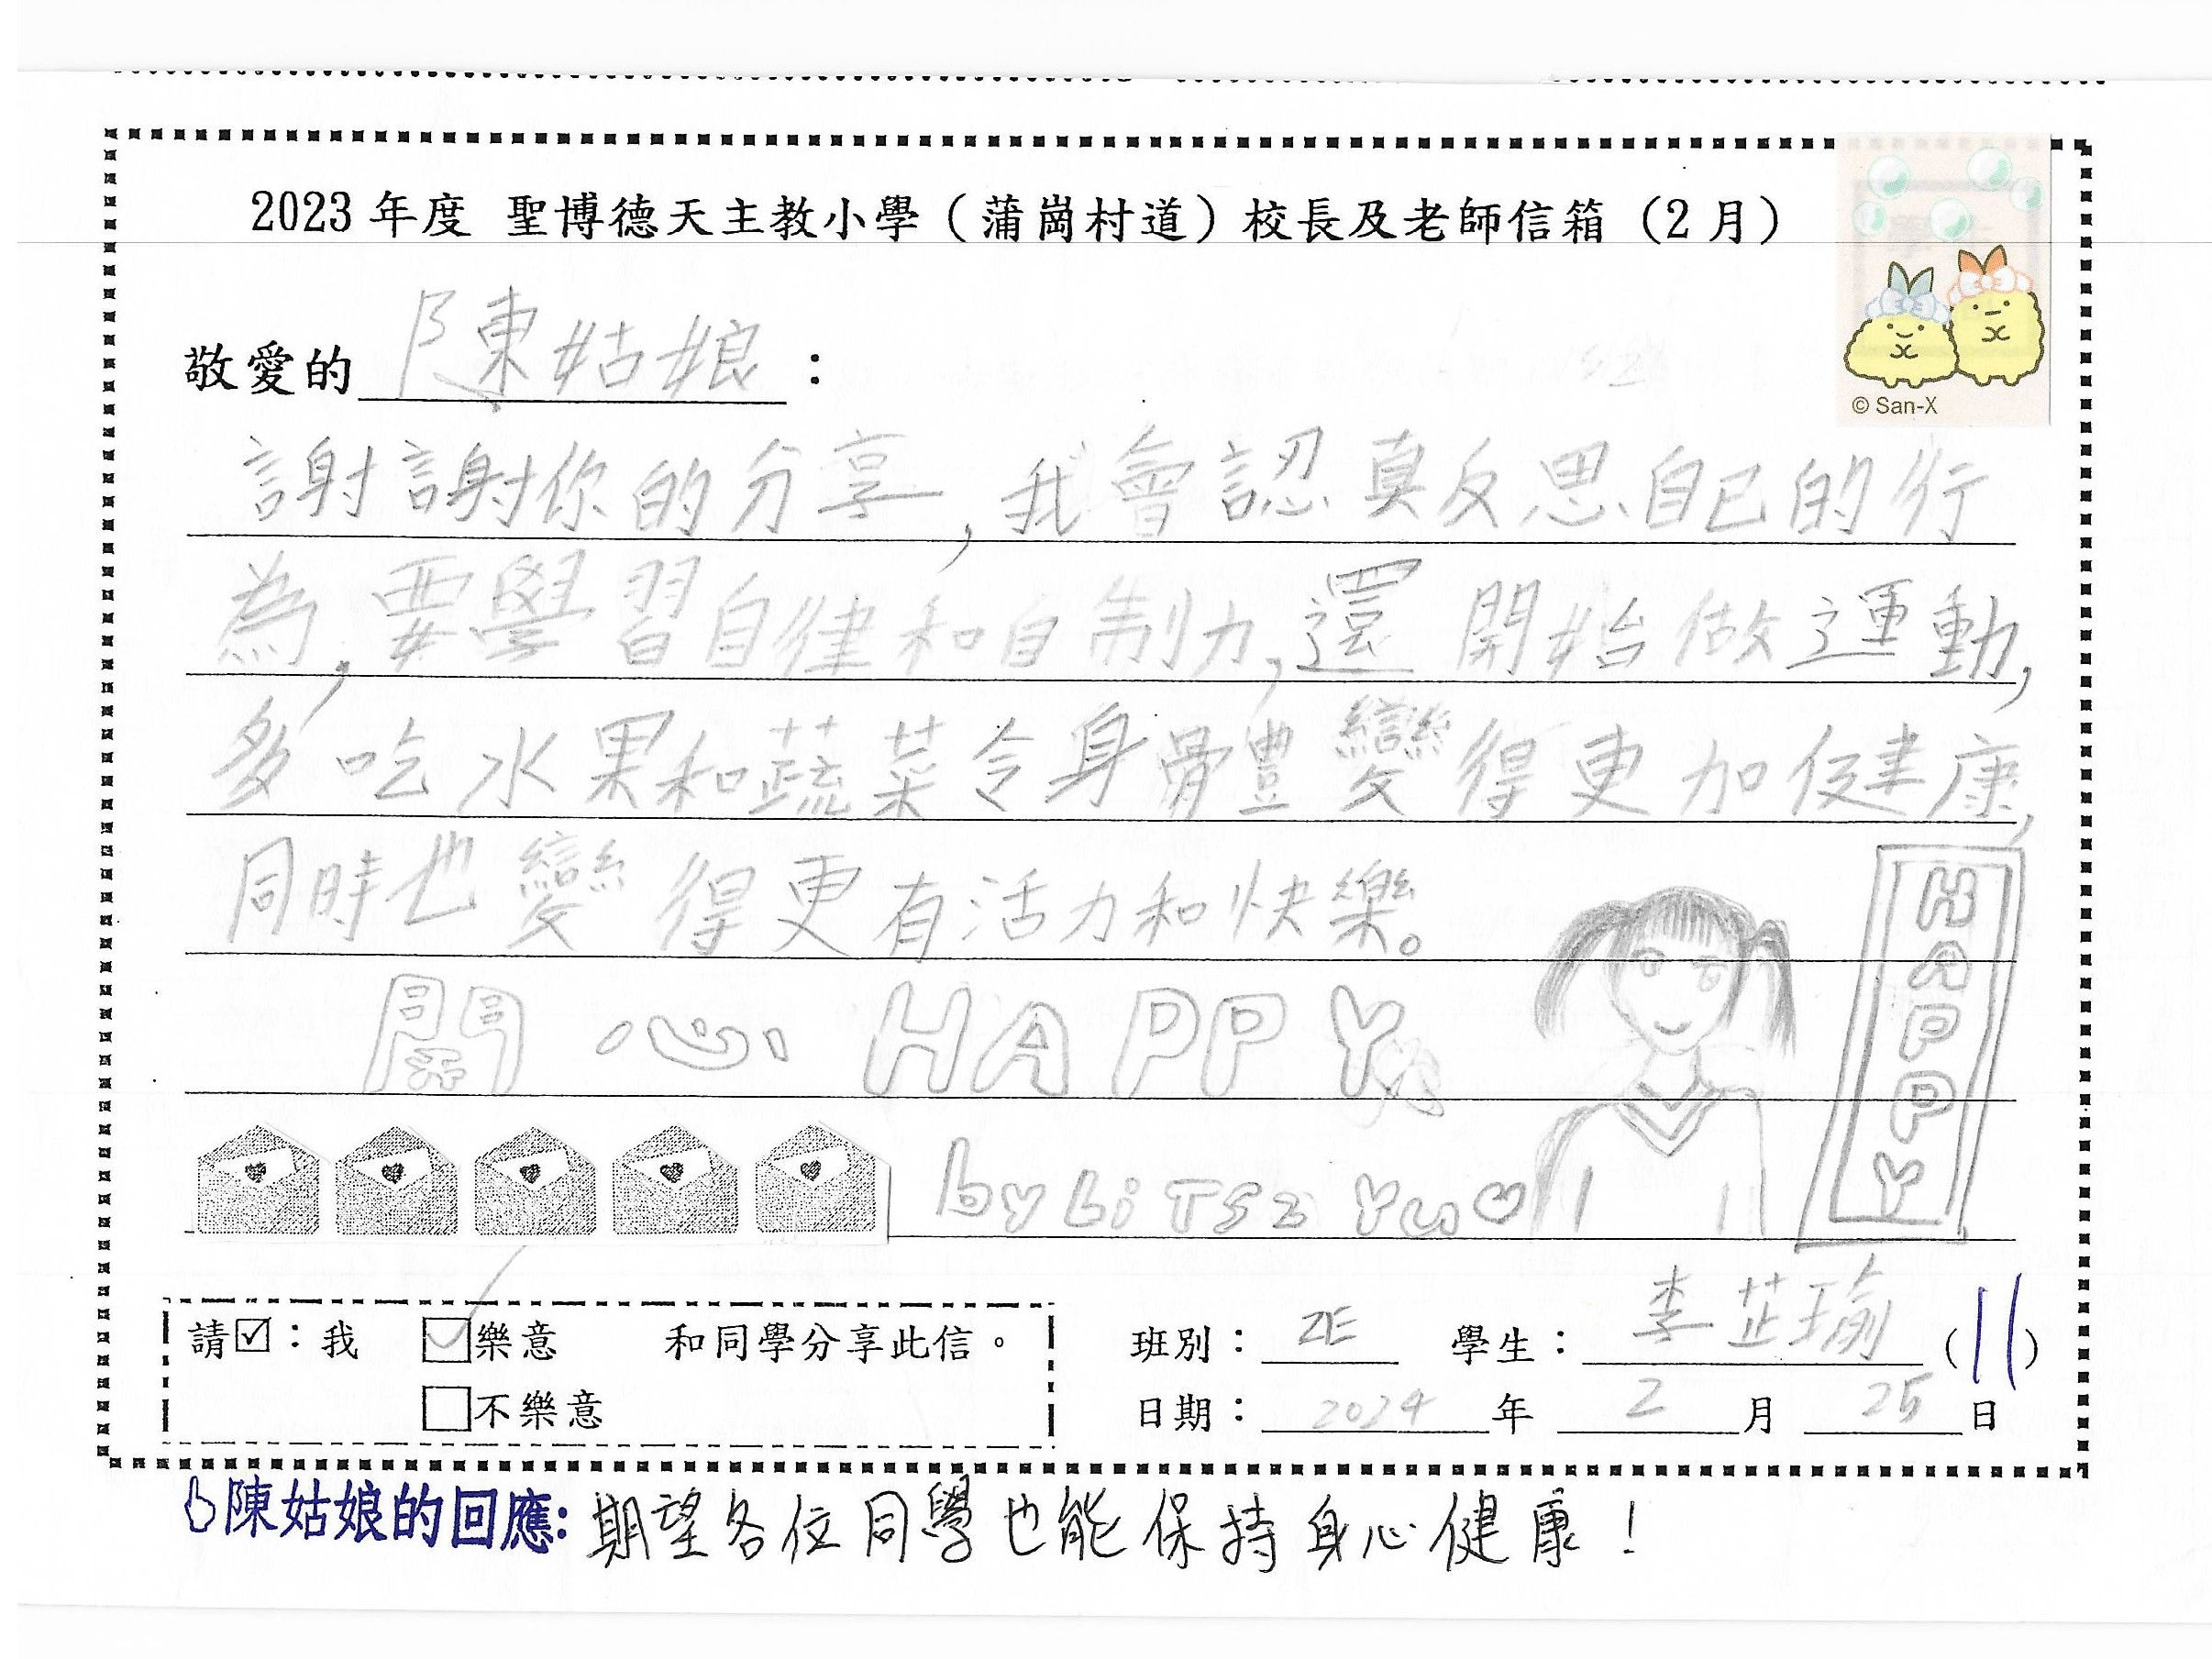 2023 年度 聖博德天主教小學（蒲崗村道）校長及老師信箱（2 月）
© San-X
敬愛的 陳姑娘：
謝謝你的分享，我會認真反思自己的行
為，要學習自律和自制力，還開始做運動，
多吃水果和蔬菜令身體變得更加健康，
同時也變得更有活力和快樂。
開心 HAPPY
HAPPY
by Li Tsz Yu
請☑：我 ☑樂意 和同學分享此信。
□不樂意
班別：2E 學生：李芷瑜（11）
日期：2024 年 2 月 25 日
陳姑娘的回應：期望各位同學也能保持身心健康！